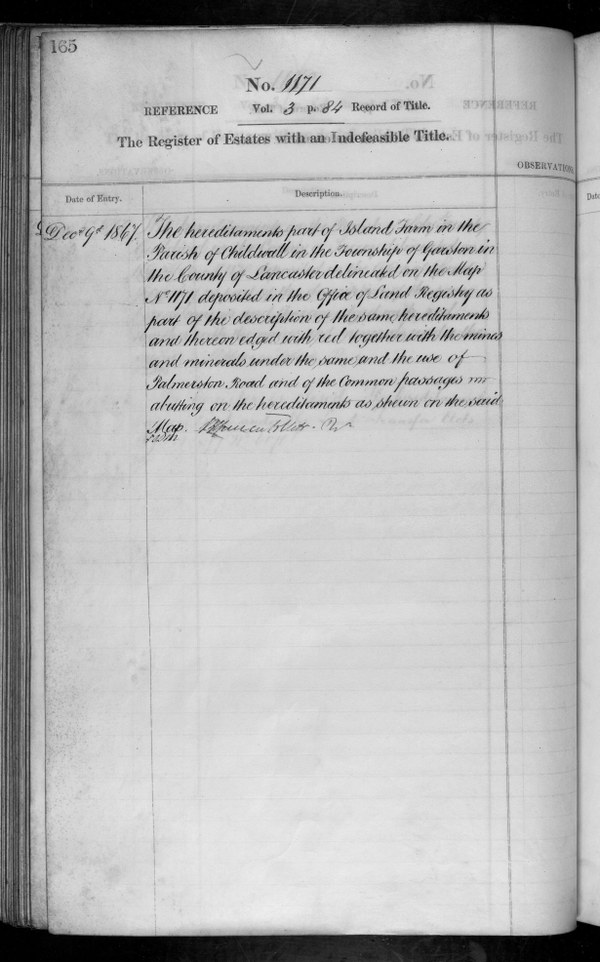 165
No. 1171
REFERENCE Vol. 3 p. 84 Record of Title.
The Register of Estates with an Indefeasible Title.
OBSERVATIONS
Date of Entry.
Description.
Decr 9th 1867.
The hereditaments part of Island Farm in the
Parish of Childwall in the Township of Garston in
the County of Lancaster delineated on the Map
No 1171 deposited in the Office of Land Registry as
part of the description of the same hereditaments
and thereon edged with red together with the mines
and minerals under the same and the use of
Palmerston Road and of the Common passages
abutting on the hereditaments as shewn on the said
Map.